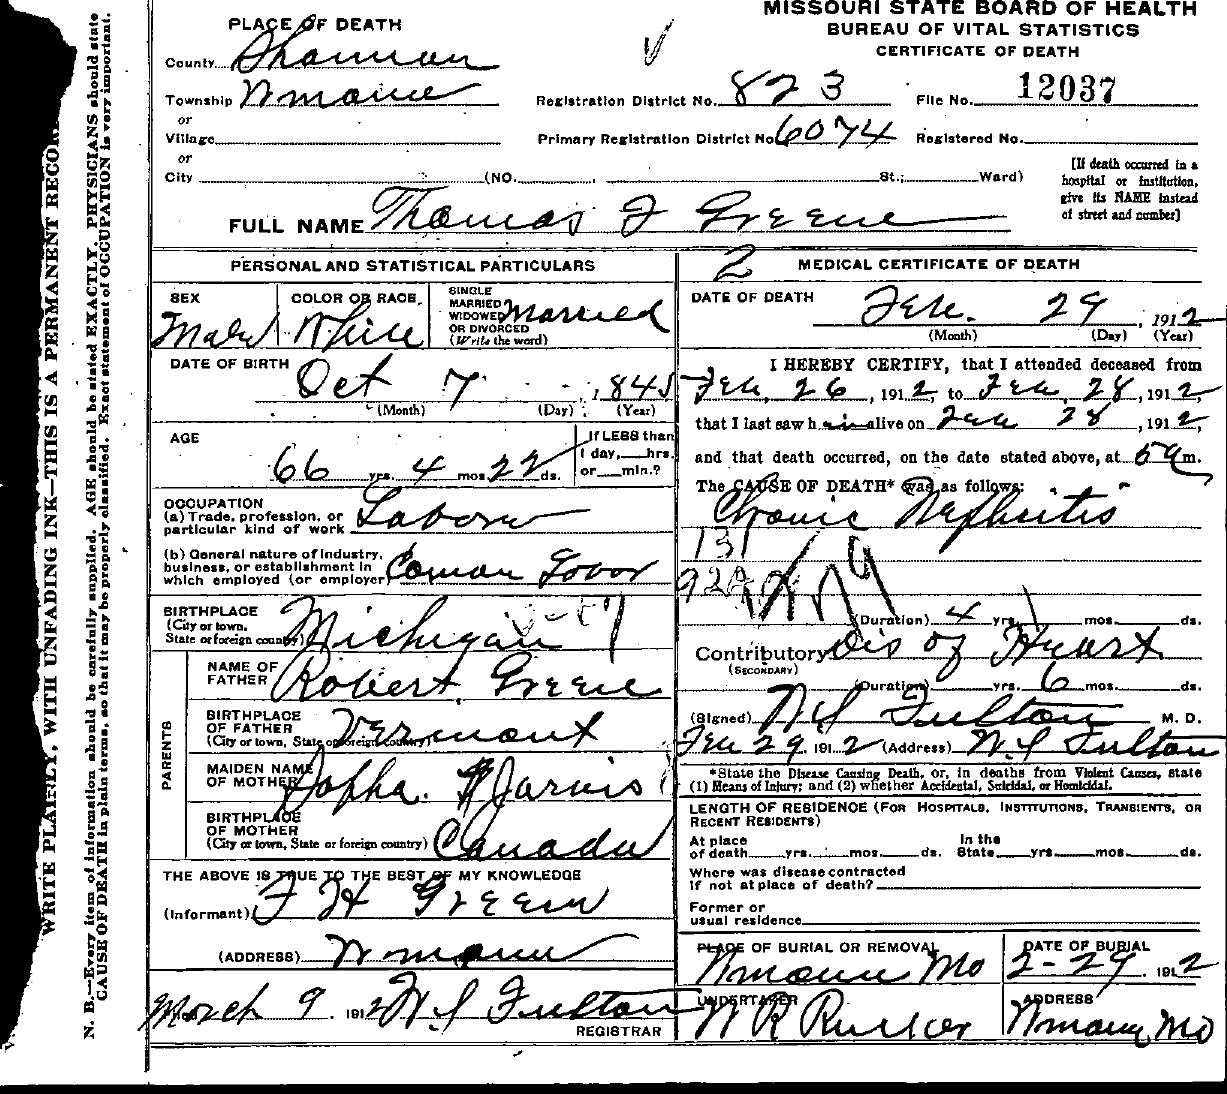 MISSOURI STATE BOARD OF HEALTH
BUREAU OF VITAL STATISTICS
CERTIFICATE OF DEATH
PLACE OF DEATH
County Shannon
Township
or
Village
or
City (NO. , St.; Ward)
Registration District No. 823 File No. 12037
Primary Registration District No 6074 Registered No.
[If death occurred in a
hospital or institution,
give its NAME instead
of street and number]
FULL NAME Thomas J Greene
PERSONAL AND STATISTICAL PARTICULARS
SEX
Male
COLOR OR RACE,
White
SINGLE
MARRIED
WIDOWED
OR DIVORCED
(Write the word)
Married
DATE OF BIRTH
Oct 7, 1845
(Month) (Day) (Year)
AGE
66 yrs. 4 mos. 22 ds.
If LESS than
1 day, hrs.
or min.?
OCCUPATION
(a) Trade, profession, or
particular kind of work Laborer
(b) General nature of Industry,
business, or establishment in
which employed (or employer)
BIRTHPLACE
(City or town,
State or foreign country) Michigan
PARENTS
NAME OF
FATHER Robert Greene
BIRTHPLACE
OF FATHER
(City or town, State or foreign country) Vermont
MAIDEN NAME
OF MOTHER Jarvis
BIRTHPLACE
OF MOTHER
(City or town, State or foreign country) Canada
THE ABOVE IS TRUE TO THE BEST OF MY KNOWLEDGE
(Informant) F H Green
(ADDRESS)
March 9, 1912 Fulton
REGISTRAR
2
MEDICAL CERTIFICATE OF DEATH
DATE OF DEATH
29, 1912
(Month) (Day) (Year)
I HEREBY CERTIFY, that I attended deceased from
26, 1912, to 28, 1912,
that I last saw h im alive on 28, 1912,
and that death occurred, on the date stated above, at 5 a m.
The CAUSE OF DEATH* was as follows:
Chronic Nephritis
131
(Duration) 4 yrs. mos. ds.
Contributory Dis of Heart
(SECONDARY)
(Duration) yrs. 6 mos. ds.
(Signed) Fulton M. D.
29, 1912 (Address) Fulton
*State the Disease Causing Death, or, in deaths from Violent Causes, state
(1) Means of Injury; and (2) whether Accidental, Suicidal, or Homicidal.
LENGTH OF RESIDENCE (FOR HOSPITALS, INSTITUTIONS, TRANSIENTS, OR
RECENT RESIDENTS)
At place
of death yrs. mos. ds.
In the
State yrs. mos. ds.
Where was disease contracted
if not at place of death?
Former or
usual residence
PLACE OF BURIAL OR REMOVAL
Mo
DATE OF BURIAL
2-29, 1912
UNDERTAKER
W R Rucker
ADDRESS
Mo
WRITE PLAINLY, WITH UNFADING INK—THIS IS A PERMANENT RECOR
N. B.—Every item of information should be carefully supplied. AGE should be stated EXACTLY. PHYSICIANS should state
CAUSE OF DEATH in plain terms, so that it may be properly classified. Exact statement of OCCUPATION is very important.